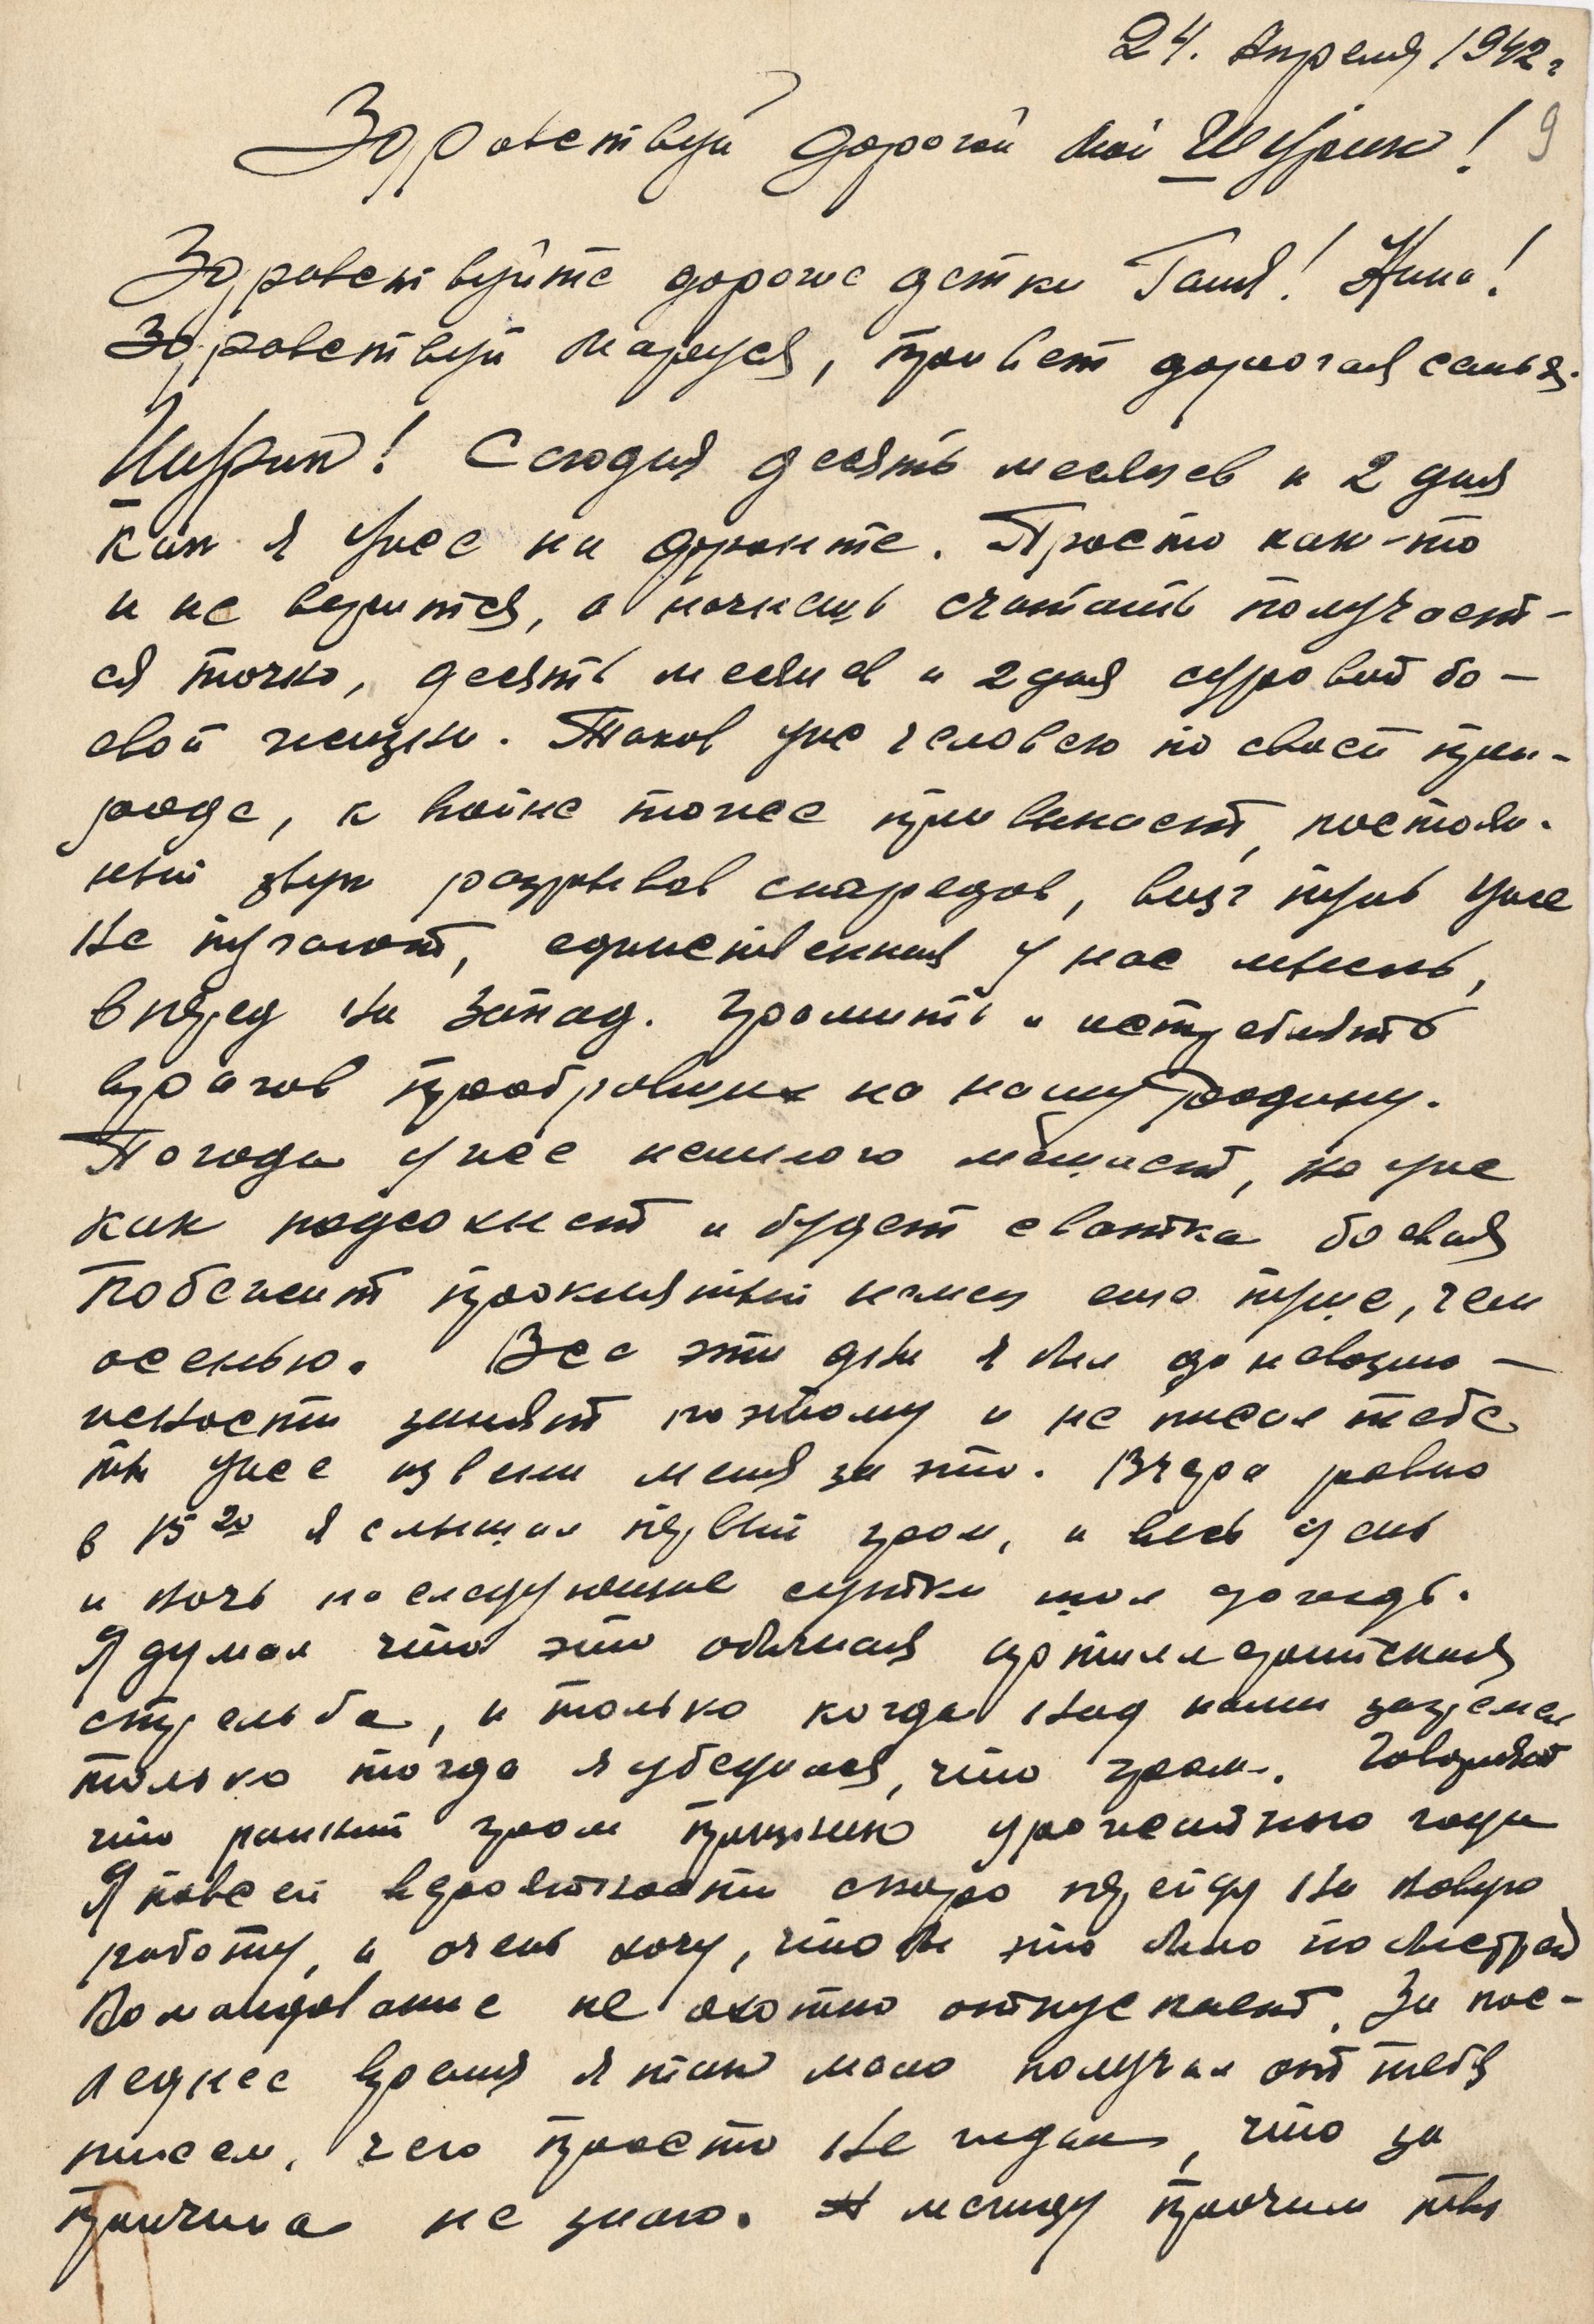 24. Апреля 1942 г
9
Здравствуй дорогой мой Шурик!
Здравствуйте дорогие детки Галя! Нина!
Здравствуй Маруся, привет дорогая семья.
Шурик! Сегодня десять месяцев и 2 дня
как я уже на фронте. Просто как-то
и не верится, а начнешь считать получает-
ся точно, десять месяцев и 2 дня суровой бо-
евой жизни. Таков уже человек по своей при-
роде, к войне тоже привыкает, постоян-
ный звук разрывов снарядов, визг пуль уже
не пугают, единственная у нас мысль,
вперед на запад. Громить и истреблять
врагов на нашу родину.
Погода уже немного мешает, но уже
как подсохнет и будет схватка боевая
Побежит проклятый немец еще пуще, чем
осенью. Все эти дни я был до невозмо-
жности занят поэтому и не писал тебе
ты уже извени меня за это. Вчера ровно
в 15 20 я слышал первый гром, и весь день
и ночь последующие сутки шол дождь.
Я думал что это обычная артиллерийская
стрельба, и только когда над нами загремел
только тогда я убедился, что гром. Говорят
что ранний гром признак урожайного года
Я по всей вероятности скоро перейду на новую
работу, и очень хочу, чтобы это было по быстрей
Командование не охотно отпускает. За пос-
леднее время я так мало получал от тебя
писем, чего просто не ждал, что за
причина не знаю. между прочим ты